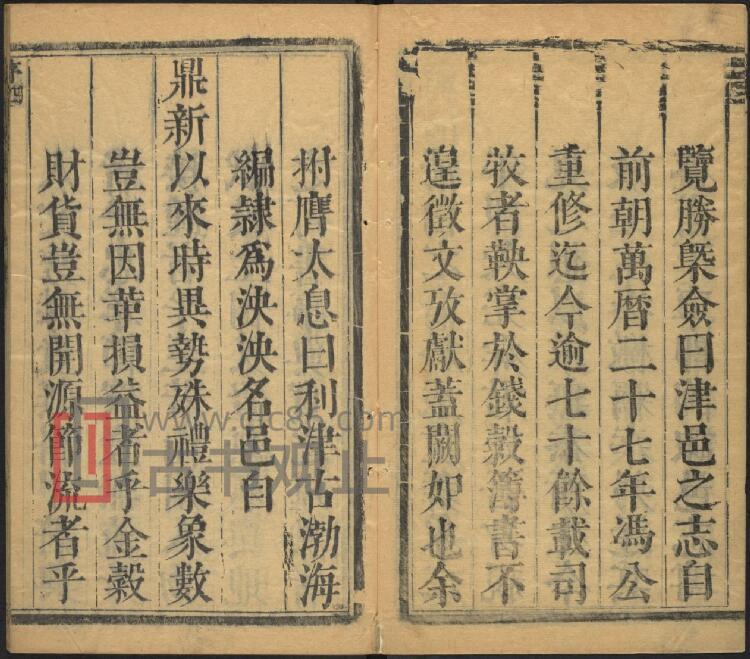 覽勝槩僉曰津邑之志自
前朝萬曆二十七年馮公
重修迄今逾七十餘載司
牧者鞅掌於錢穀簿書不
遑徵文攷獻蓋闕如也余
拊膺太息曰利津古渤海
編隸爲泱泱名邑自
鼎新以來時異勢殊禮樂象數
豈無因革損益者乎金穀
財貨豈無開源節流者乎
序四
古书观止